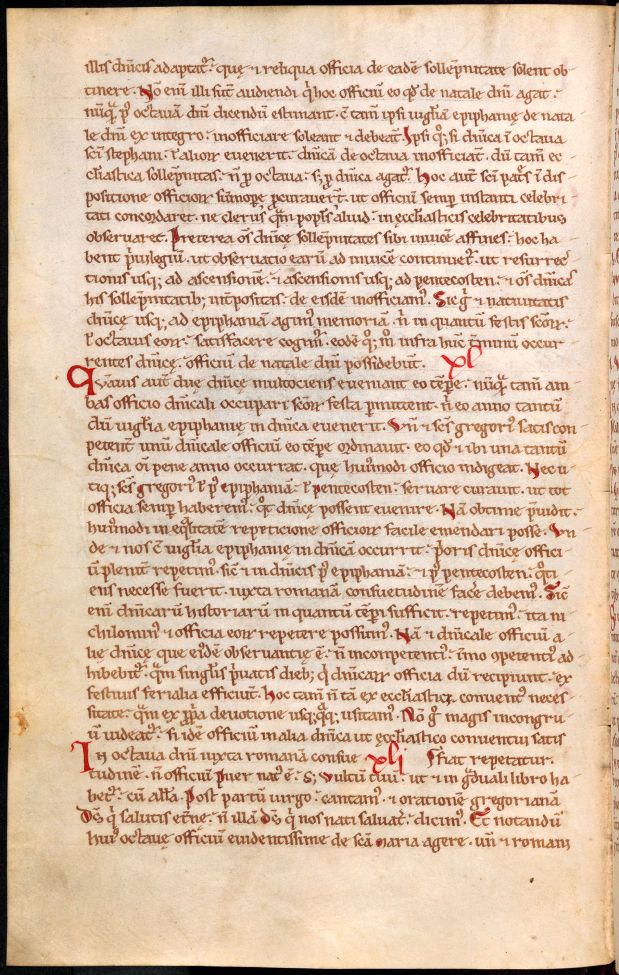 illis dn̄icis adaptat᷑. quę ⁊ reliqua officia de eadē sollēpnitate solent ob-
tinere. Nō eni᷑ illi sūt audiendi q̇ hoc officiū eo qd̓ de natale dn̄i agat᷑.
nūq̄ p᷒ octauā dn̄i dicendū estimant. c̄ tam̄ ipsi uigł̓iā epiphanię de nata-
le dn̄i ex integro. inofficiare soleant ⁊ debeāt. Ipsi qͦ᷒. si dn̄ica ī octaua
sc̄i stephani. ł alior̄ euenerit. dn̄icā de octaua inofficiāt. dū tam̄ ec-
clīastica sollēpnitas. n̄ p̱ octaua. s; p̱ dn̄ica agat᷑. Hoc aut̄ sc̄i pat̄s ī dis-
positione officior̄ sūmope p̱curauer̄t. ut officiū semp̱ instanti celebri-
tati concordaret. ne clerus q̄m popl̓s aliud. in ęcclīasticis celebritatibus
obseruaret. Preterea om̄s dn̄icę sollēpnitates sibi inuicē affines. hoc ha-
bent p̓uilegiū. ut obseruatio earū ad inuicē continuet᷑. ut resurrec-
tionis usq; ad ascensionē. ⁊ ascensionis usq; ad pentecosten. ⁊ om̄s dn̄icas
his sollēpnitatib; int̄positas. de eisdē inofficiam᷒. Sic g̊ ⁊ natiuitatis
dn̄icę usq; ad epiphaniā agim᷒ memoriā. n̓ in quantū festis sc̄or̄.
ł octauis eor̄. satisfacere cogim᷒. eodē qͦ᷒ mͦ infra hunc t̄minū occur-
rentes dn̄icę. officiū de natale dn̄i possidebūt. xl
Quāuis aut̄ due dn̄icę multociens eueniant eo tēpe. nūq̄ tam̄ am-
bas officio dn̄icali occupari sc̄or̄ festa p̱mittent. n̓ eo anno tantū
dū uigł̓ia epiphanię in dn̄ica euenerit. Vn̄ ⁊ sc̄s gregori᷒ satis con-
petent̄ unū dn̄icale officiū eo tēpe ordinauit. eo qd̓ ⁊ ibi una tantū
dn̄ica om̄i pene anno occurrat. que hui᷒modi officio indigeat. Nec u-
tiq; sc̄s gregori᷒ ł p᷒ epiphaniā. ł pentecosten. seruare curauit. ut tot
officia semp̱ haberem᷒. qͦt dn̄icę possent euenire. Nā obtime p̄uidit.
hui᷒modi in eq̄litatē repeticione officior̄ facile emendari posse. Vn-
de ⁊ nos c̄ uigł̓ia epiphanię in dn̄icā occurrit. p̓oris dn̄icę offici-
ū plenit̄ repetim᷒. sic̄ ⁊ in dn̄icis p᷒ epiphaniā. ⁊ p᷒ pentecosten. qͦti-
ens necesse fuerit. iuxta romanā consuetudinē facē debem᷒. Sic̄
eni᷑ dn̄icarū historiarū in quantū tēp̱i sufficit. repetim᷒. ita ni-
chilomin᷒ ⁊ officia eor̄ repetere possum᷒. Nā ⁊ dn̄icale officiū a-
lię dn̄icę que ei᷒dē obseruantię ē. n̄ inconpetent᷑. īmo ꝯpetenti᷒ ad-
hibebit᷑. q̄m singl̓is p̓uatis dieb; q̇ dn̄icar̄ officia dū recipiunt. ex
festiuis ferialia efficiūt. Hoc tam̄ n̄ tā ex ecclīasticę conuent᷒ neces-
sitate. q̄m ex p̱pria deuotione usq;q; usitam᷒. Nō g̊ magis incongru-
ū uideat᷑. si idē officiū in alia dn̄ica ut ecclīastico conuentui satis
fiat repetatur. xli
In octaua dn̄i iuxta romanā consue-
tudinē. n̄ officiū Puer nat᷒ ē. s; Vultū tuū. ut ⁊ in g̓duali libro ha-
bet᷑. cū ałła. Post partū uirgo. cantam᷒. ⁊ orationē gregorianā
Ds̄ q̇ salutis et̄nę. n̄ illā Ds̄ q̇ nos nati saluat᷑. dicim᷒. Et notandū
hui᷒ octauę officiū euidentissime de sc̄a maria agere. un̄ ⁊ romani